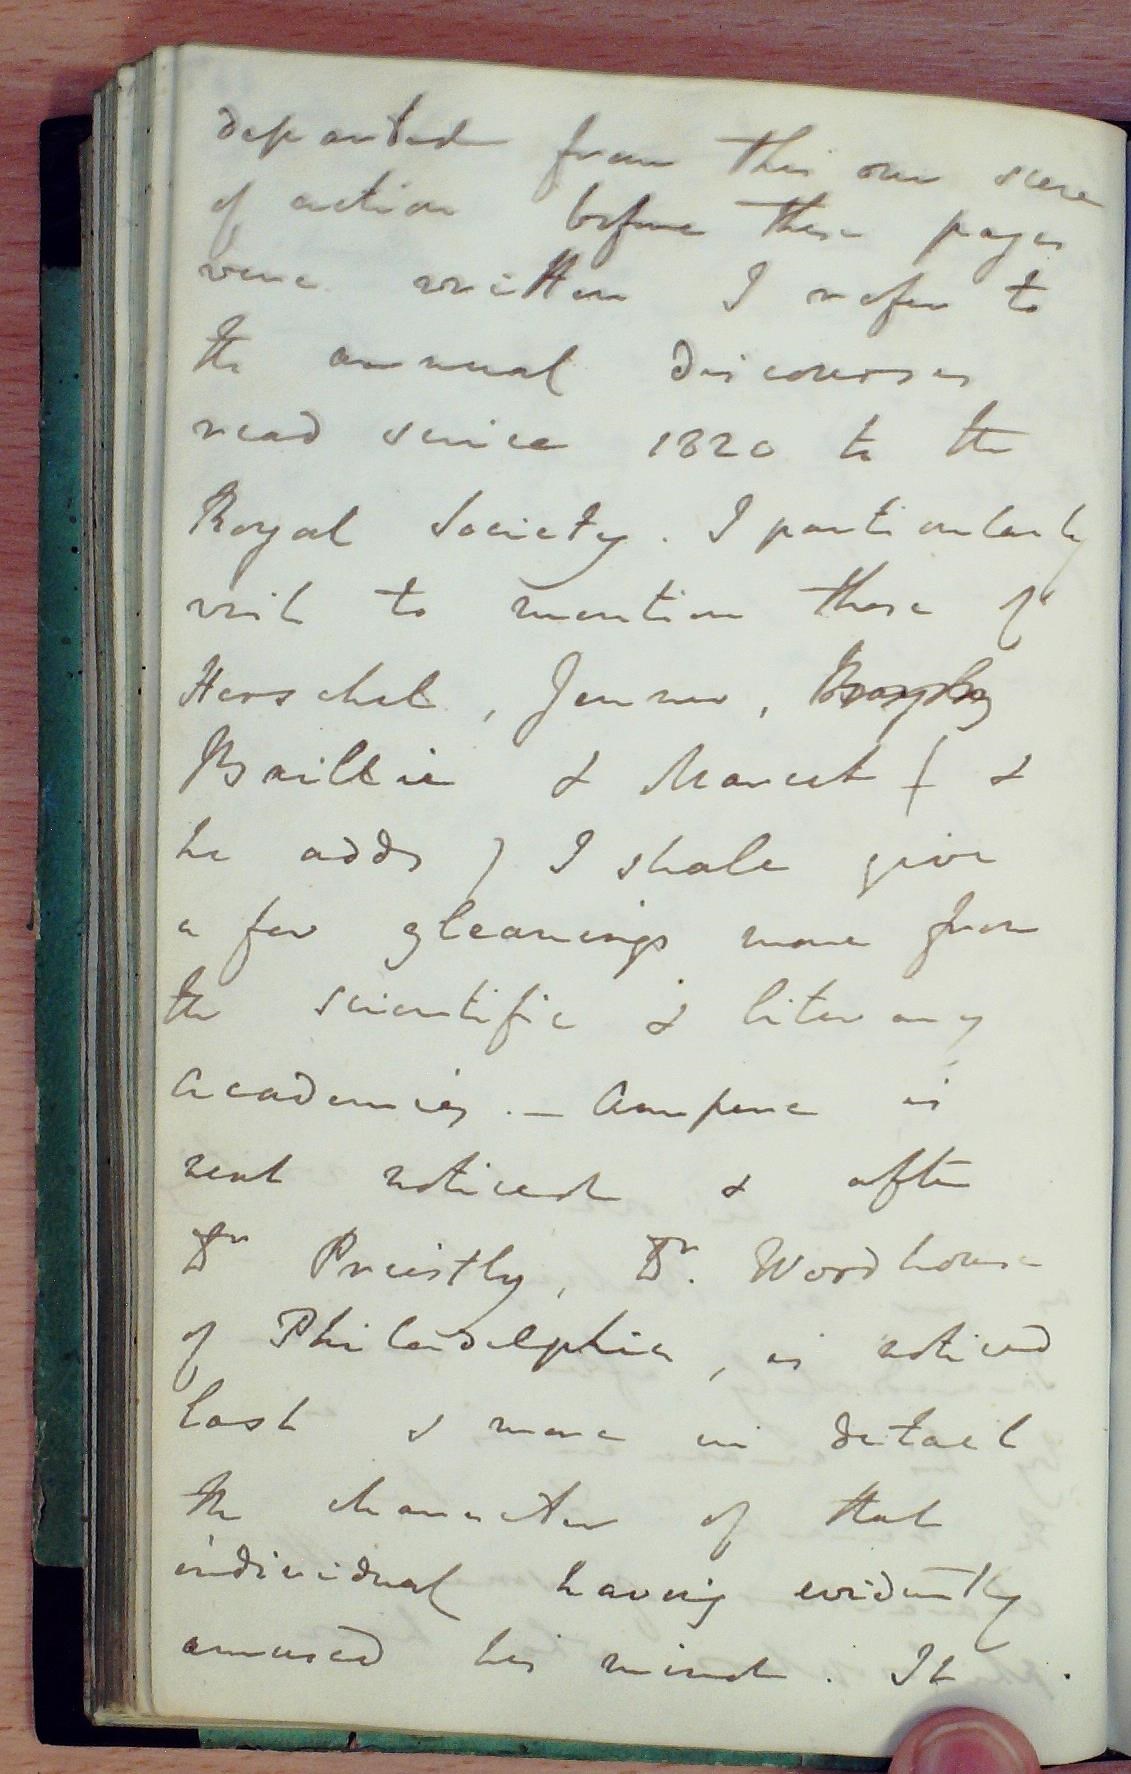 departed from this our scene
of action before these pages
were written I refer to
the annual discourses
read since 1820 to the
Royal Society. I particularly
wish to mention those of
Herschel, Jenner,
Baillie & Marcet (&
he adds) I shall give
a few gleanings more from
the scientific & literary
academies. — Ampere is
next noticed & after
Dr Priestly, Dr. Woodhouse
of Philadelphia, is noticed
last & more in detail
the character of that
individual having evidently
amused his mind. It